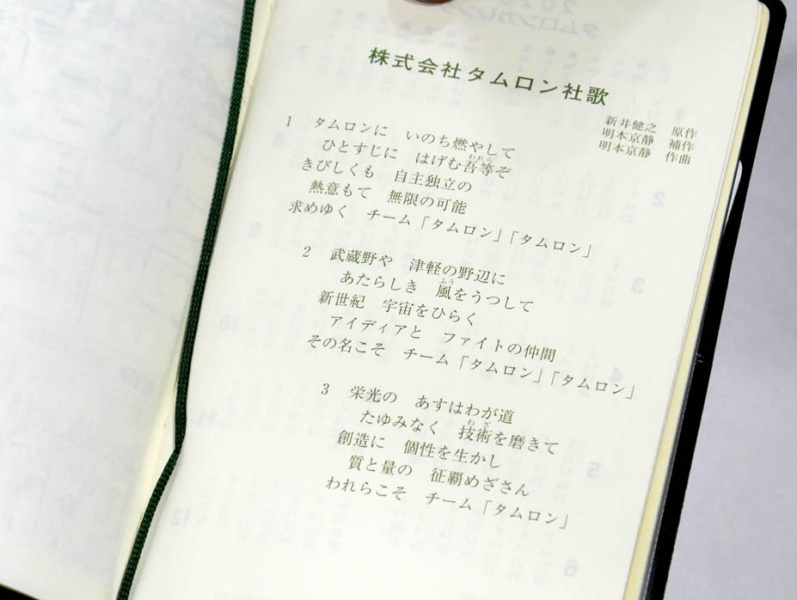 株式会社タムロン社歌
新井健之 原作
明本京静 補作
明本京静 作曲
1 タムロンに いのち燃やして
ひとすじに はげむ吾等ぞ
われら
きびしくも 自主独立の
熱意もて 無限の可能
求めゆく チーム「タムロン」「タムロン」
2 武蔵野や 津軽の野辺に
あたらしき 風をうつして
ふう
新世紀 宇宙をひらく
アイディアと ファイトの仲間
その名こそ チーム「タムロン」「タムロン」
3 栄光の あすはわが道
たゆみなく 技術を磨きて
わざ
創造に 個性を生かし
質と量の 征覇めざさん
われらこそ チーム「タムロン」